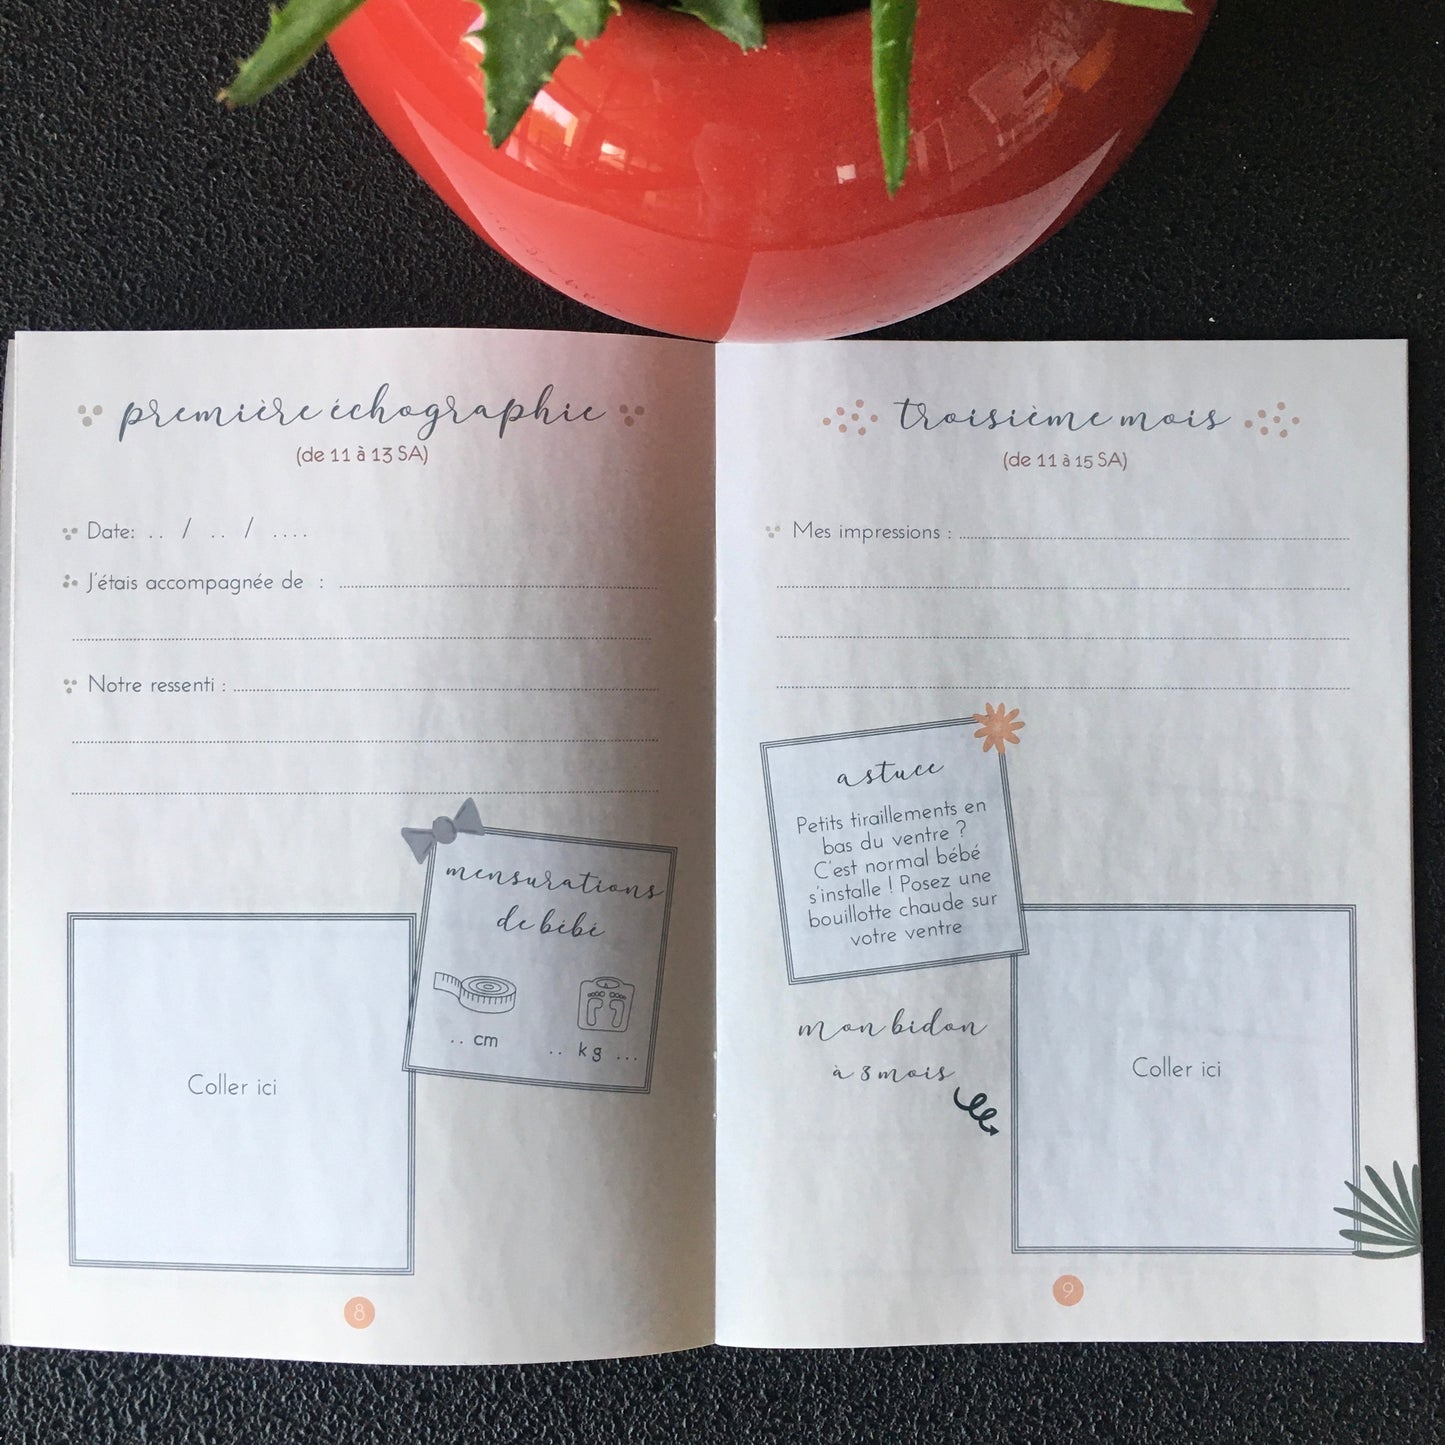 première échographie
(de 11 à 13 SA)
Date: .. / .. / ....
J'étais accompagnée de :
Notre ressenti :
mensurations
de bébé
.. cm
.. kg ...
Coller ici
8
troisième mois
(de 11 à 15 SA)
Mes impressions :
astuce
Petits tiraillements en
bas du ventre ?
C'est normal bébé
s'installe ! Posez une
bouillotte chaude sur
votre ventre
mon bidon
à 3 mois
Coller ici
9